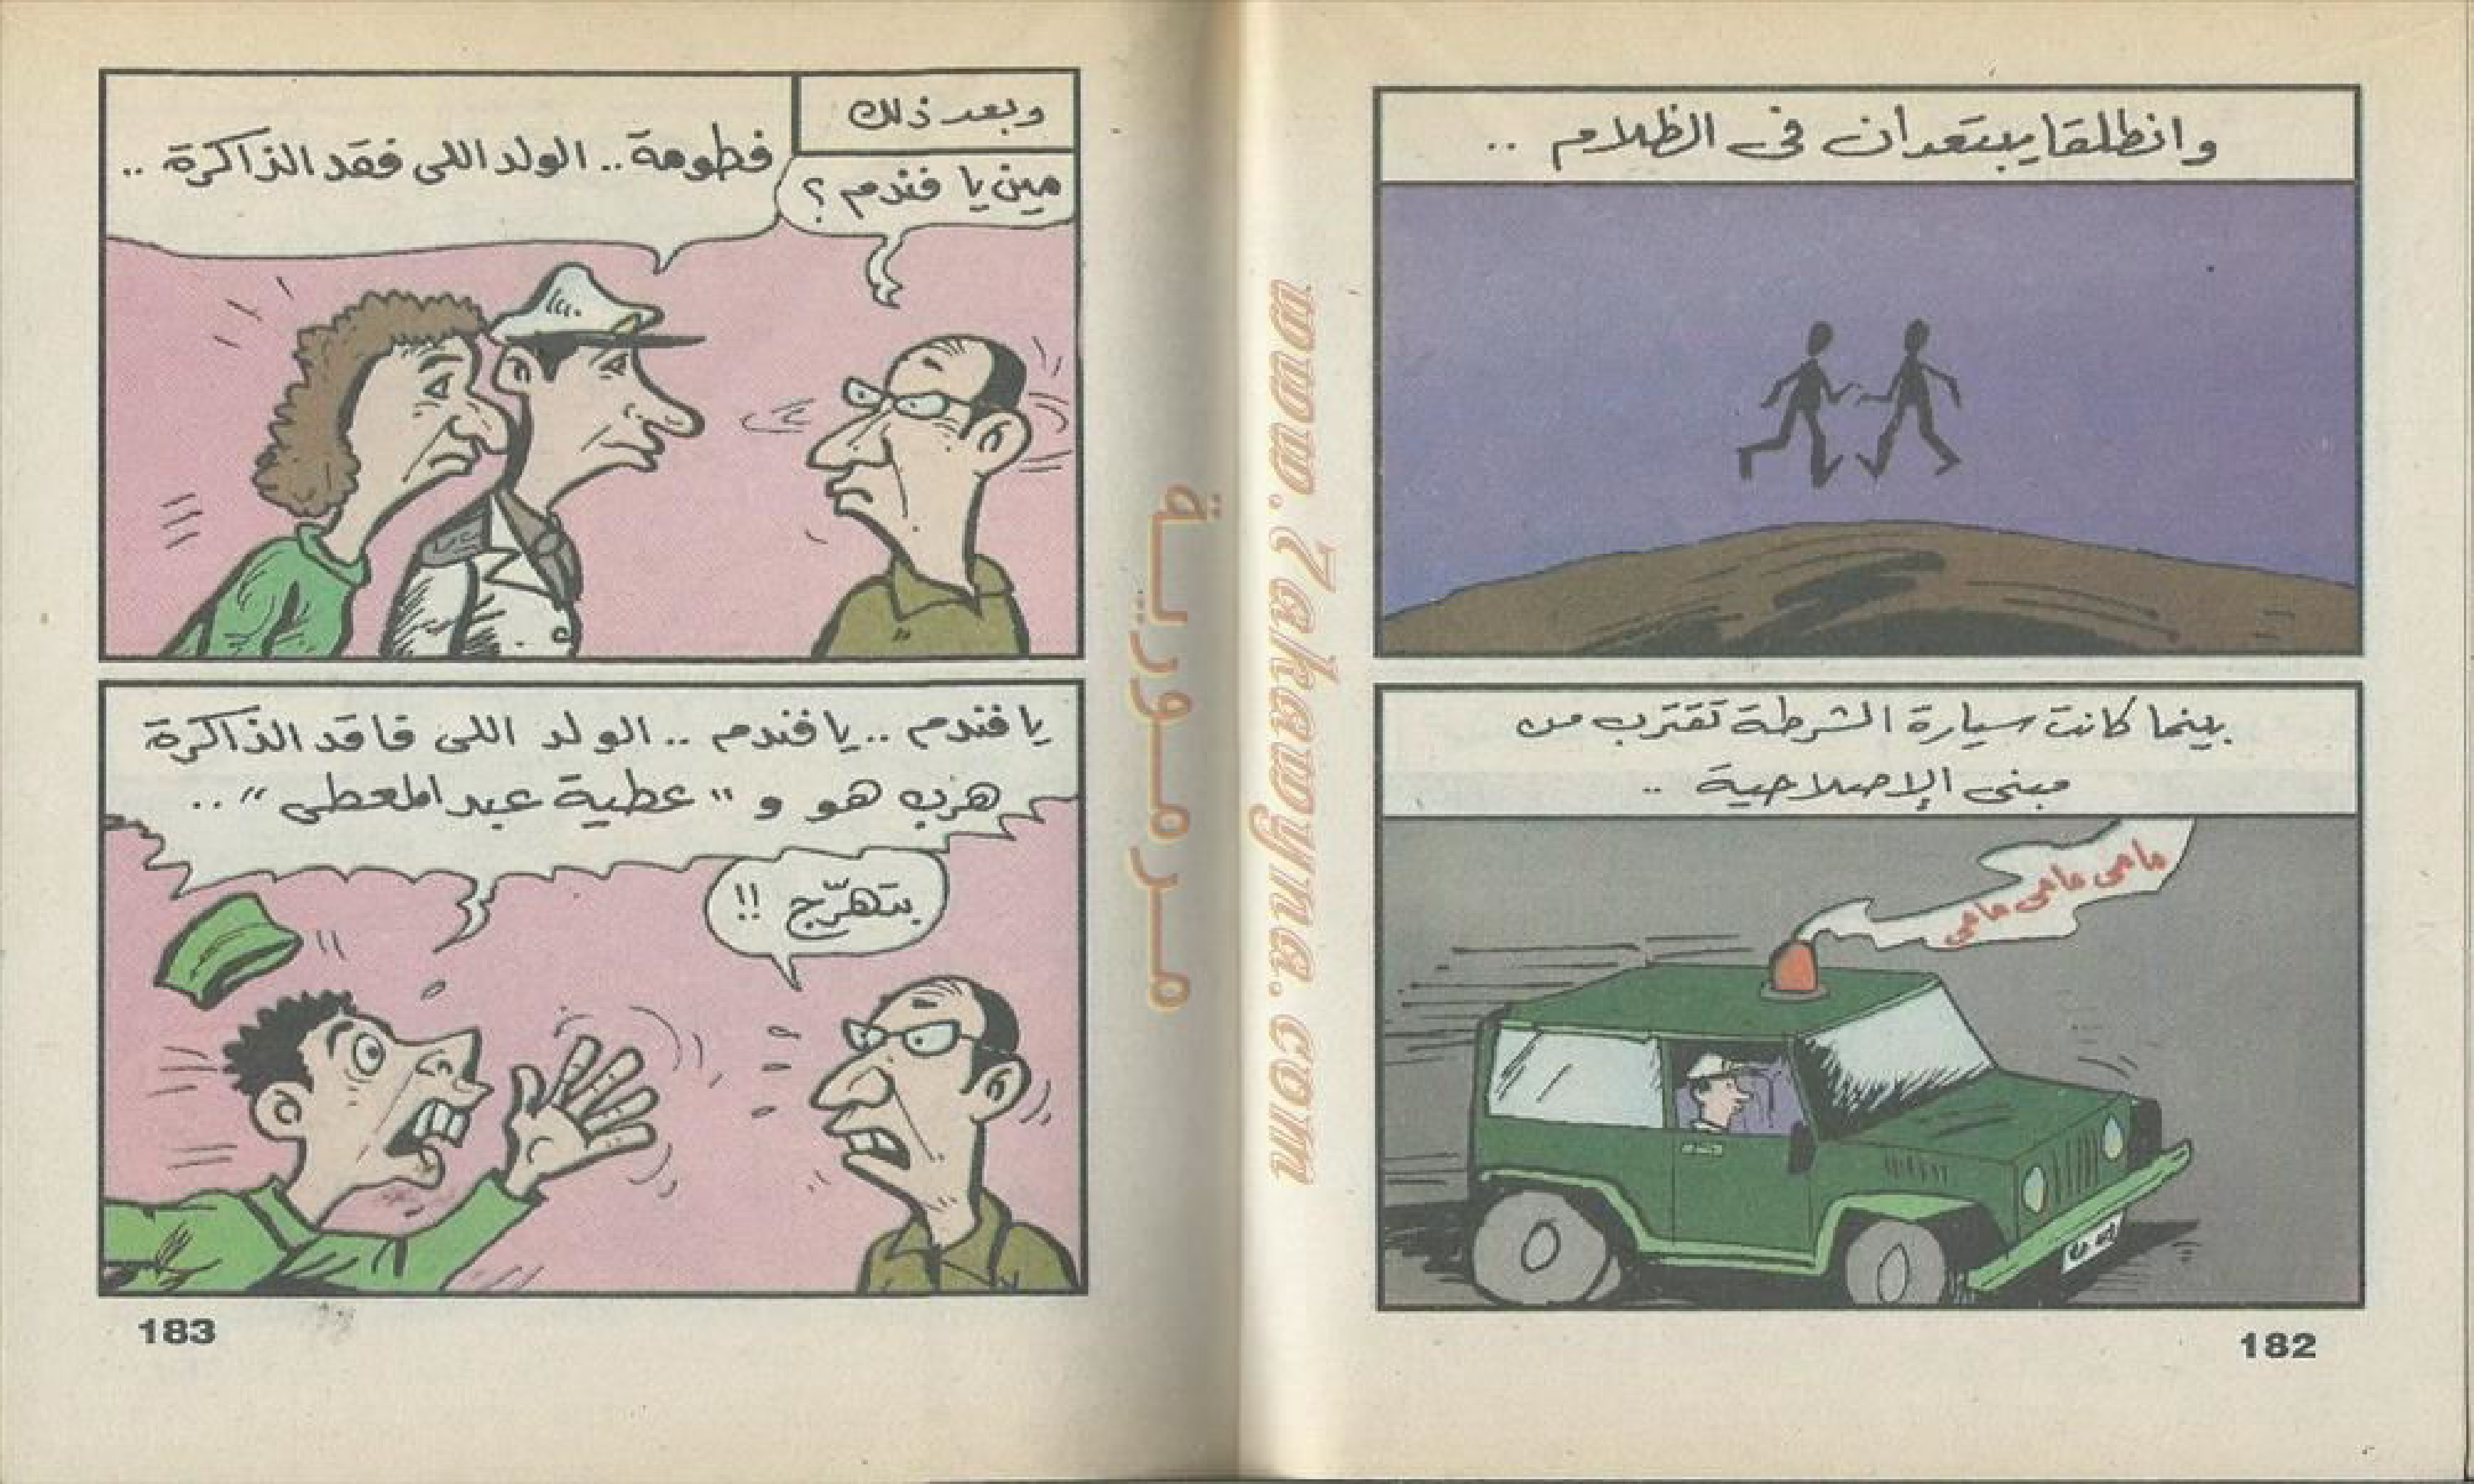 وانطلقا يبتعدان فى الظلام ..
بينما كانت سيارة الشرطة تقترب من
مبنى الإصلاحية ..
مامى مامى مامى
182
وبعد ذلك
مين يا فندم ؟
فطومة .. الولد اللى فقد الذاكرة ..
يا فندم .. يا فندم .. الولد اللى فاقد الذاكرة
هرب هو و " عطية عبد المعطى " ..
بتهرّج !!
183
مرمورية
www.Zakawyna.com